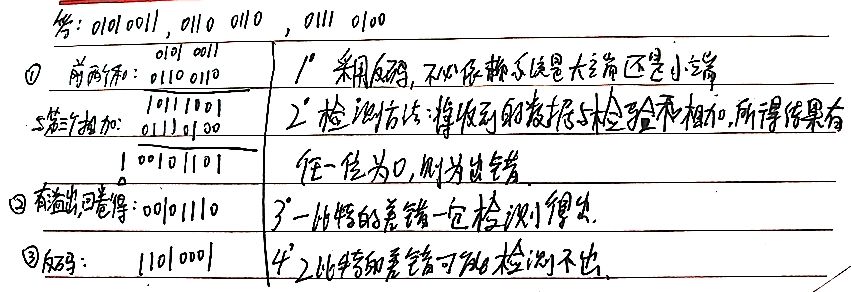 答: 01010011, 0110 0110, 0111 0100
① 前两个和: 0101 0011
0110 0110
10111001
与第三个相加: 01110100
1 00101101
② 有溢出,回卷得: 00101110
③ 反码: 11010001
1° 采用反码, 不必依赖系统是大端还是小端
2° 检测方法: 将收到的数据与检验和相加, 所得结果有
任一位为0, 则为出错.
3° 一比特的差错一定检测得出.
4° 2比特的差错可能检测不出.